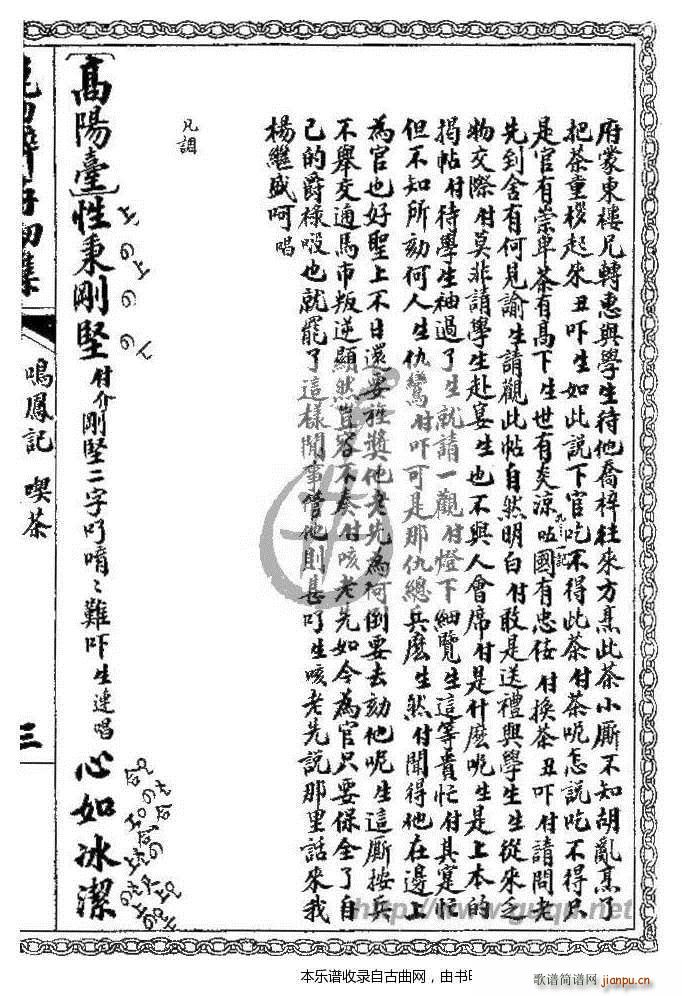 府蒙東樓兄轉惠與學生待他喬梓往來方烹此茶小厮不知胡亂烹了
把茶重椤起朱丑吓生如此說下官吃不得此茶付茶呢怎說吃不得只
是官有崇卑茶有高下生世有炎涼咗國有忠佞付換茶丑吓付請問老
先到舍有何見諭生請觀此帖自然明白付敢是送禮與學生生從來乏
物交際付莫非請學生赴宴生也不與人會席付是什麽呢生是上本的
揭帖付待學生袖過了生就請一觀付燈下細覽生這等貴忙付其寔忙
但不知所劾何人生仇鸞付吓可是那仇總兵麽生然付聞得他在邊上
為官也好聖上不日還要旌獎他老先為何倒要去劾他呢生這厮按兵
不舉交通馬市叛逆顯然豈容不奏付咳老先如今為官只要保全了自
己的爵祿啵也就罷了這樣閒事管他則甚吖生咳老先說那里話來我
楊繼盛呵唱
凡調
高陽臺 性秉剛堅 付介剛堅二字吖唷〻難吓生連唱 心如冰潔
鳴鳳記 喫茶
三
http://www.guqu.net
本乐谱收录自古曲网，由书
歌谱简谱网
jianpu.cn